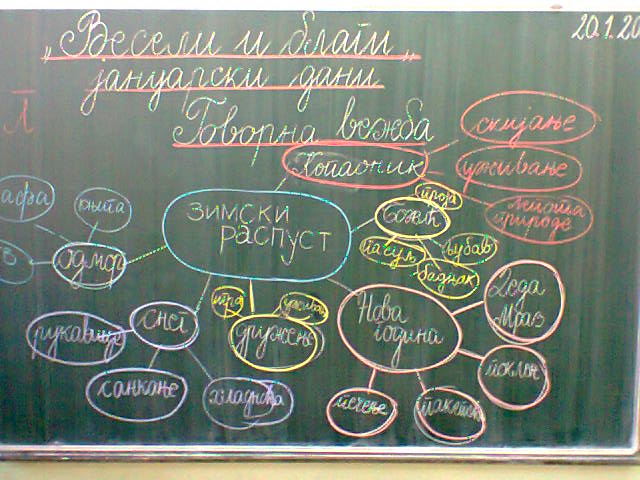 20.1.20
„Весели и благи“
јануарски дани
Говорна вежба
Копаоник
скијање
уживање
лепота
природе
ЗИМСКИ
РАСПУСТ
Божић
проја
пасуљ
љубав
бадњак
књига
одмор
снег
рукавице
санкање
хладноћа
дружење
игра
Нова
година
Деда
Мраз
поклон
пакетић
печење